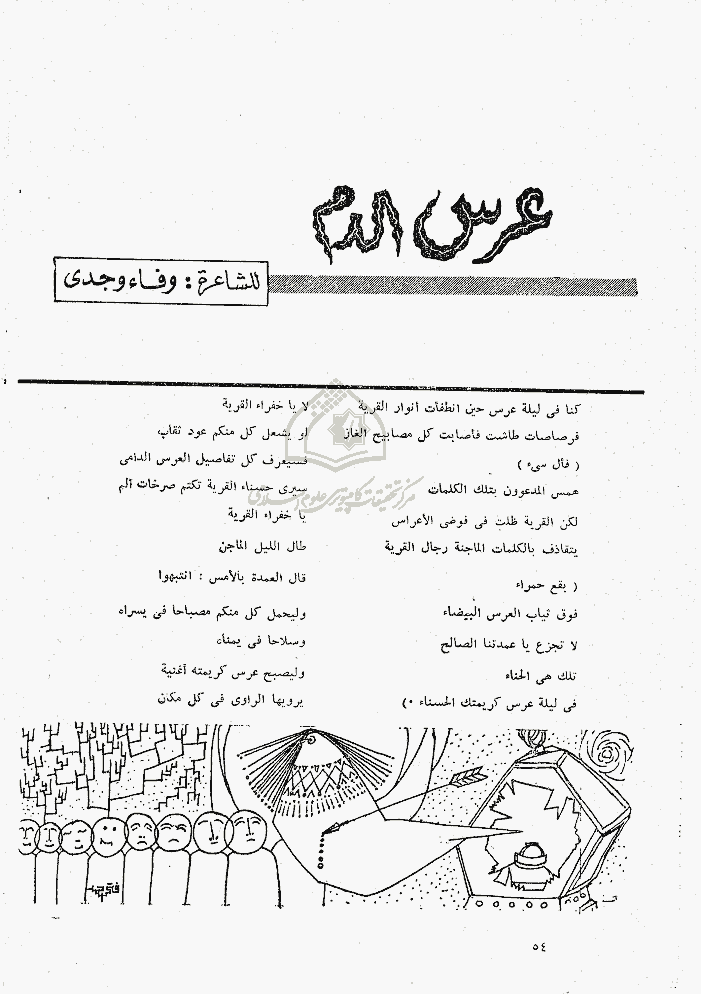 عرس الدم
للشاعرة : وفاء وجدى
كنا فى ليلة عرس حين انطفأت أنوار القرية
فرصاصات طاشت فأصابت كل مصابيح الغاز
( فأل سىء )
همس المدعوون بتلك الكلمات
لكن القرية ظلت فى فوضى الأعراس
يتقاذف بالكلمات الماجنة رجال القرية
( بقع حمراء
فوق ثياب العرس البيضاء
لا تجزع يا عمدتنا الصالح
تلك هى الحناء
فى ليلة عرس كريمتك الحسناء ٠)
لا يا خفراء القرية
لو يشعل كل منكم عود ثقاب
فسيعرف كل تفاصيل العرس الدامى
سيرى حسناء القرية تكتم صرخات ألم
يا خفراء القرية
طال الليل الماجن
قال العمدة بالأمس : انتبهوا
وليحمل كل منكم مصباحا فى يسراه
وسلاحا فى يمناه
وليصبح عرس كريمته أغنية
يرويها الراوى فى كل مكان
مركز تحقيقات كامپيوترى علوم اسلامى
٥٤